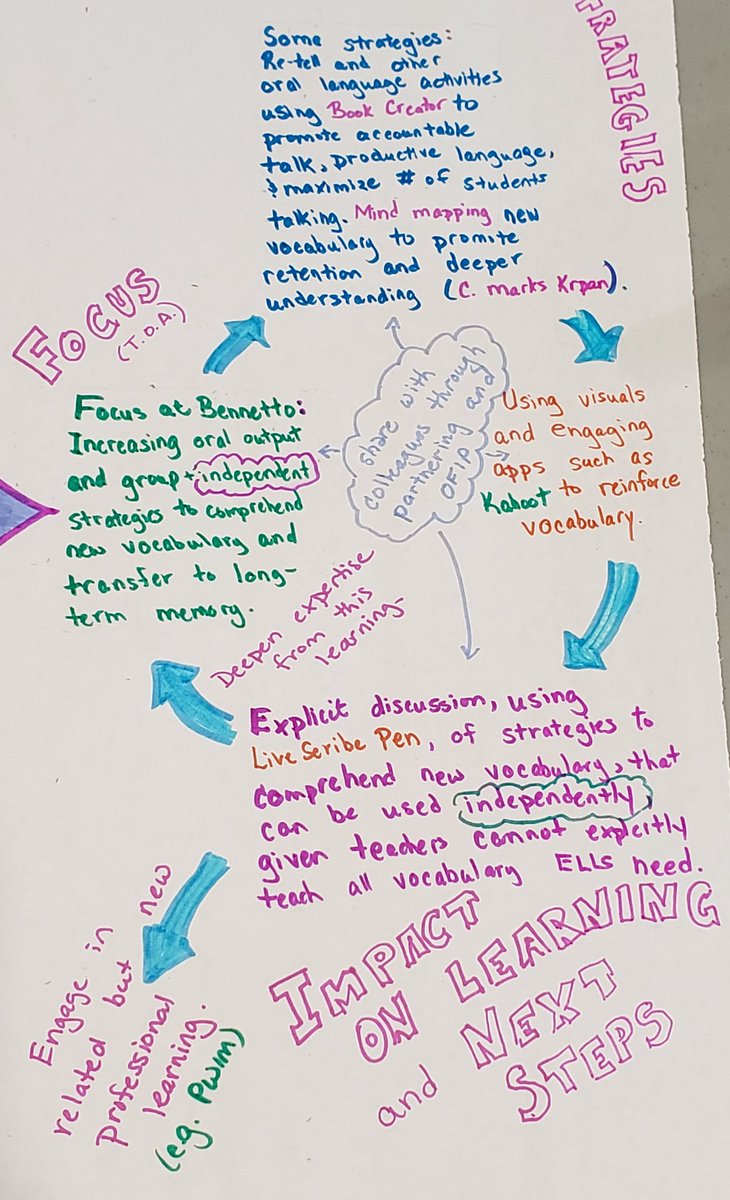 STRATEGIES
Some strategies:
Re-tell and other
oral language activities
using Book Creator to
promote accountable
talk, productive language,
& maximize # of students
talking. Mind mapping new
vocabulary to promite
retention and deeper
understanding (C. marks Krpan).
FOCUS
(T.O.A.)
Focus at Bennetto:
Increasing oral output
and group + independent
strategies to comprehend
new vocabulary and
transfer to long-
term memory.
share with
colleagues through
partnering and
OFIP
Using visuals
and engaging
apps such as
Kahoot to reinforce
vocabulary.
Deepen expertise
from this
learning.
Explicit discussion, using
LiveScribe Pen, of strategies to
comprehend new vocabulary, that
can be used independently,
given teachers cannot explicitly
teach all vocabulary ELLs need.
Engage in new
related but
professional
learning.
(e.g. PWIM)
IMPACT
ON LEARNING
and NEXT
STEPS